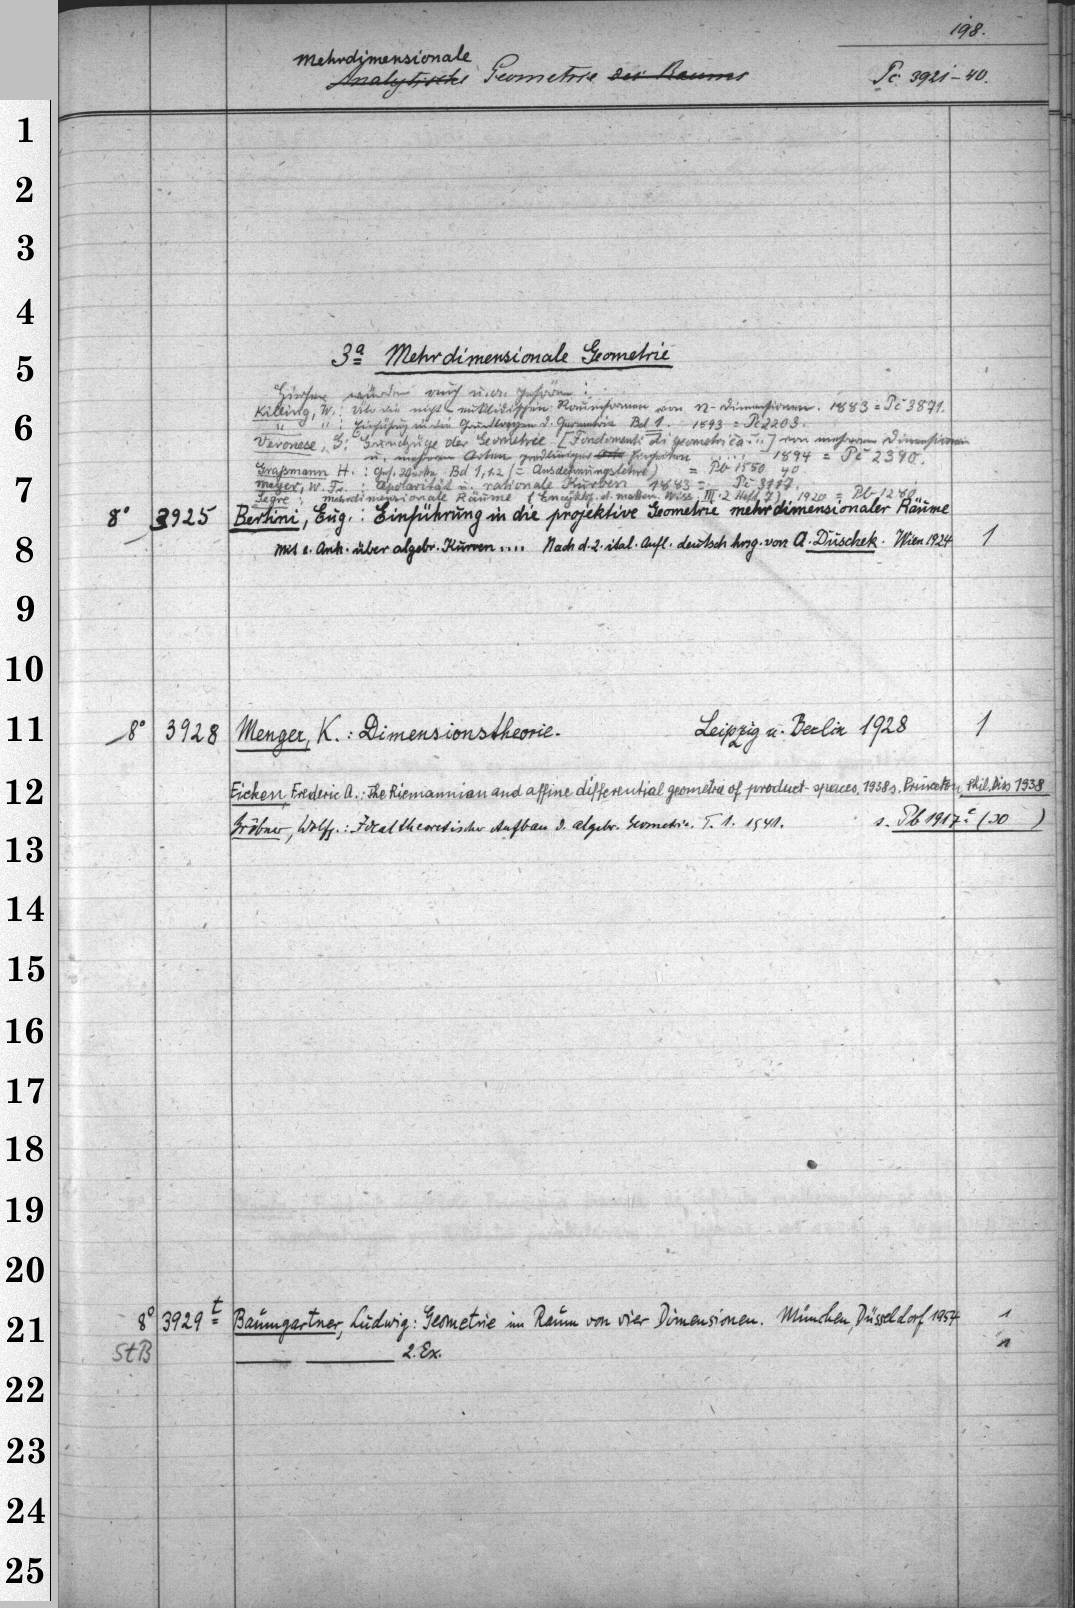 198.
Mehrdimensionale
Analytische Geometrie des Raums Pc 3921-40.
1
2
3
4
3a Mehrdimensionale Geometrie
5
Hierher würden auch u.a. gehören:
Killing, W.: Die nicht-euklidischen Raumformen von n-Dimensionen. 1883 = Pc 3871.
6
" ": Einführung in die Grundlagen d. Geometrie Bd 1. 1893 = Pc 2203.
Veronese, G: Grundzüge der Geometrie [Fondamenti di geometrica ...] von mehreren Dimensionen
u. mehreren Arten gradliniger Einheiten ..... 1894 = Pc 2390.
Graßmann H.: Ges. Werke Bd 1,1.2 (= Ausdehnungslehre) = Pb 1550 40.
7
Meyer, W. Fr.: Apolarität u. rationale Kurven 1883 = Pc 3117.
Segre: mehrdimensionale Räume (Encyklop. d. mathem. Wiss. III.2 Heft 7) 1920 = Pb 1280
8° 3925 Bertini, Eug.: Einführung in die projektive Geometrie mehrdimensionaler Räume
8
mit e. Anh. über algebr. Kurven .... Nach d. 2. ital. Aufl. deutsch hrsg. von A. Duschek. Wien 1924 1
9
10
11
8° 3928 Menger, K.: Dimensionstheorie. Leipzig u. Berlin 1928 1
12
Eicken, Frederic A.: The Riemannian and affine differential geometrie of product-spaces. 1938 s. Princeton, Phil. Diss 1938
Gröbner, Wolfg.: Idealtheoretischer Aufbau d. algebr. Geometrie. T. 1. 1941. s. Pb 1917c (30 )
13
14
15
16
17
18
19
20
21
8° 3929 t Baumgartner, Ludwig: Geometrie im Raum von vier Dimensionen. München, Düsseldorf 1954 1
StB 2. Ex. 1
22
23
24
25